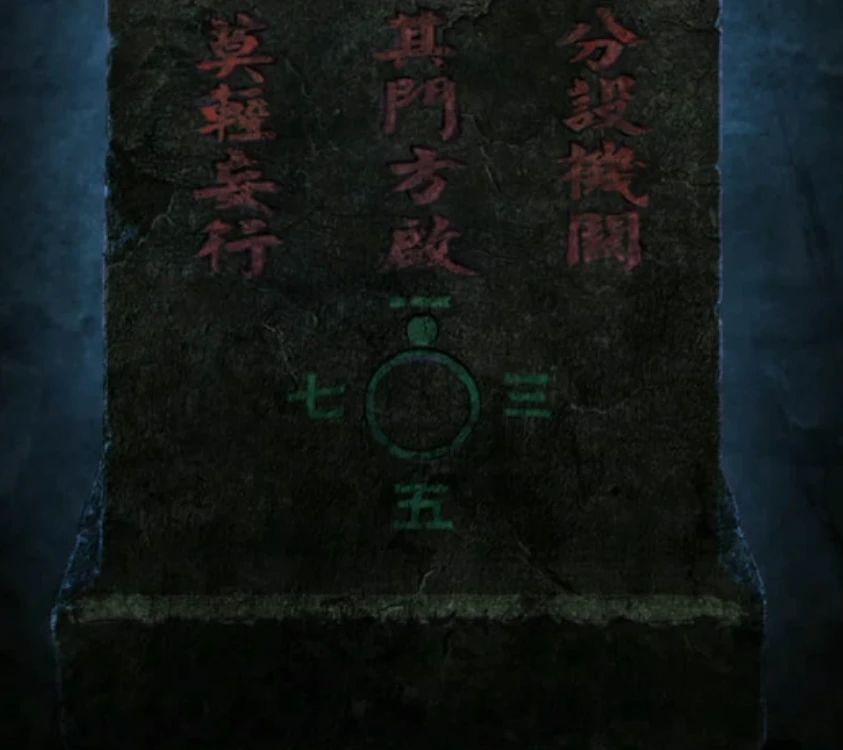 分設機關
其門方啟
莫輕妄行
一
七 三
五